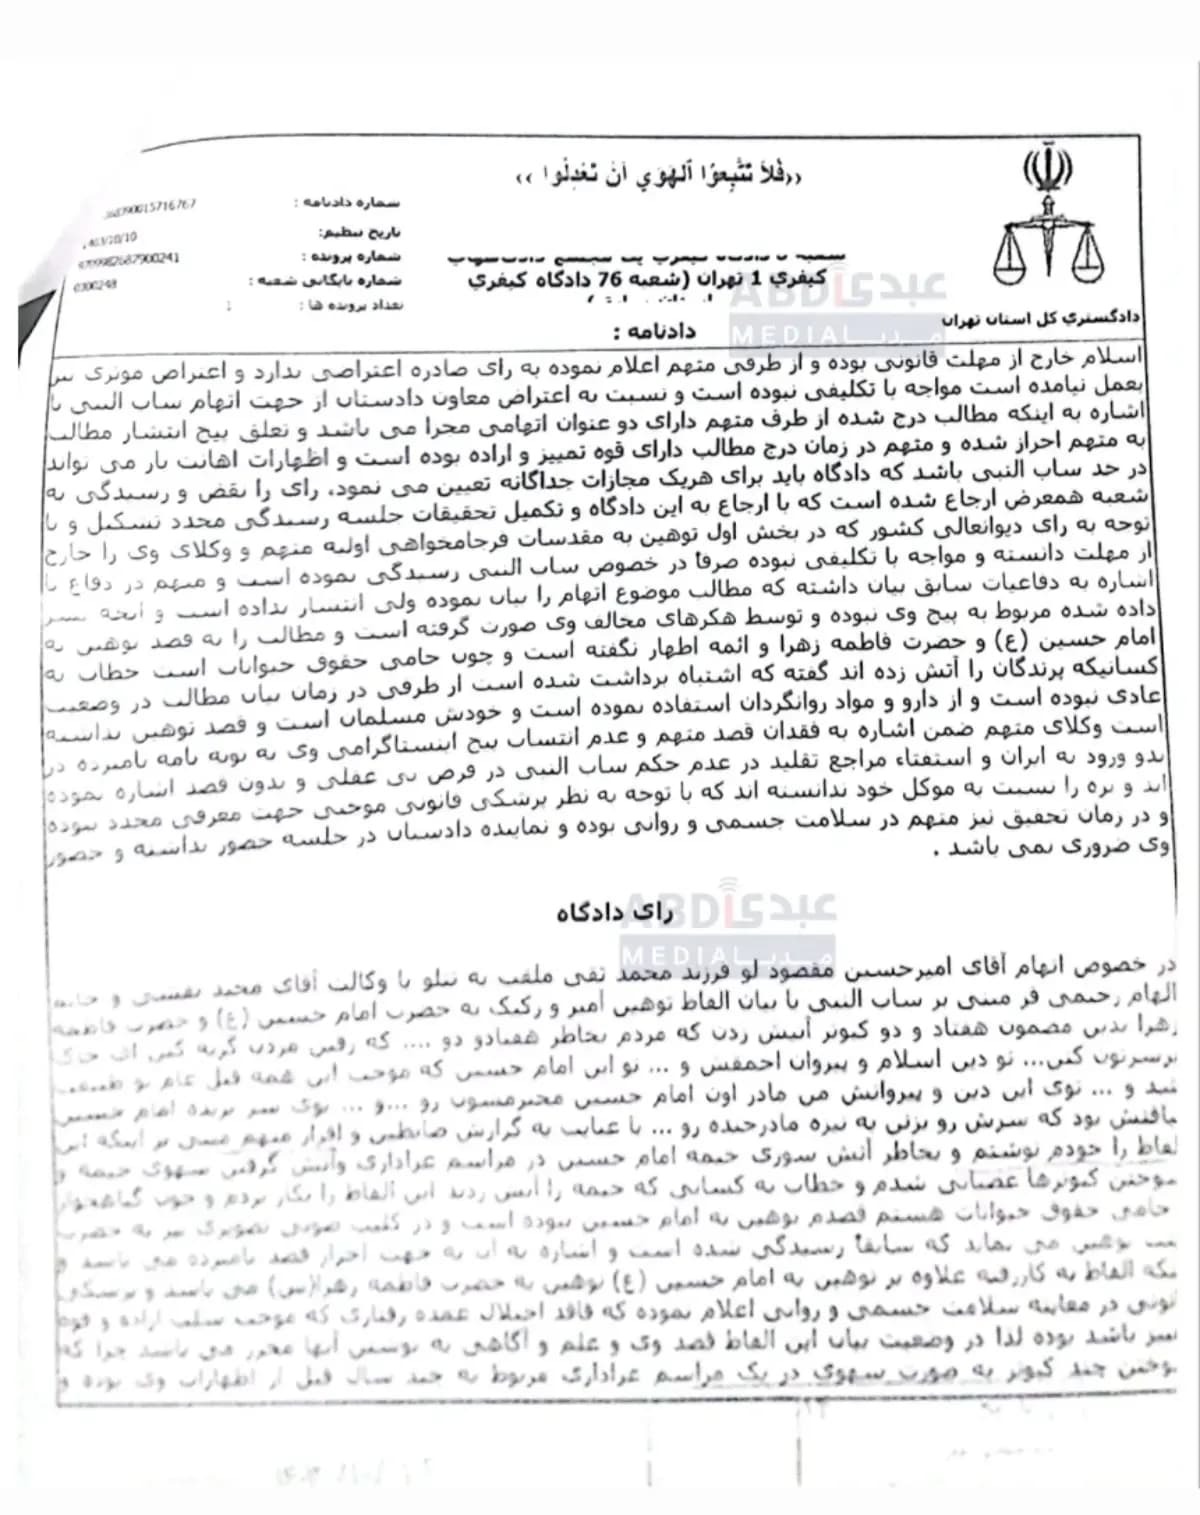 ««فَلاَ تَتَّبِعُوا الْهَوَي أَنْ تَعْدِلُوا »»
شماره دادنامه :
تاریخ تنظیم:
شماره پرونده :
شماره بایگانی شعبه :
تعداد پرونده ها :
کیفری 1 تهران (شعبه 76 دادگاه کیفری
دادگستری کل استان تهران
دادنامه :
ABDI عبدی
MEDIA مدیا
اسلام خارج از مهلت قانونی بوده و از طرفی متهم اعلام نموده به رای صادره اعتراضی ندارد و اعتراض موثری نیز
بعمل نیامده است مواجه با تکلیفی نبوده است و نسبت به اعتراض معاون دادستان از جهت اتهام ساب النبی با
اشاره به اینکه مطالب درج شده از طرف متهم دارای دو عنوان اتهامی مجزا می باشد و تعلق پیج انتشار مطالب
به متهم احراز شده و متهم در زمان درج مطالب دارای قوه تمییز و اراده بوده است و اظهارات اهانت بار می تواند
در حد ساب النبی باشد که دادگاه باید برای هریک مجازات جداگانه تعیین می نمود، رای را نقض و رسیدگی به
شعبه همعرض ارجاع شده است که با ارجاع به این دادگاه و تکمیل تحقیقات جلسه رسیدگی مجدد تشکیل و با
توجه به رای دیوانعالی کشور که در بخش اول توهین به مقدسات فرجامخواهی اولیه متهم و وکلای وی را خارج
از مهلت دانسته و مواجه با تکلیفی نبوده صرفا در خصوص ساب النبی رسیدگی نموده است و متهم در دفاع با
اشاره به دفاعیات سابق بیان داشته که مطالب موضوع اتهام را بیان نموده ولی انتشار نداده است و آنچه نشر
داده شده مربوط به پیج وی نبوده و توسط هکرهای مخالف وی صورت گرفته است و مطالب را به قصد توهین به
امام حسین (ع) و حضرت فاطمه زهرا و ائمه اظهار نگفته است و چون حامی حقوق حیوانات است خطاب به
کسانیکه پرندگان را آتش زده اند گفته که اشتباه برداشت شده است از طرفی در زمان بیان مطالب در وضعیت
عادی نبوده است و از دارو و مواد روانگردان استفاده نموده است و خودش مسلمان است و قصد توهین نداشته
است وکلای متهم ضمن اشاره به فقدان قصد متهم و عدم انتساب پیج اینستاگرامی وی به توبه نامه نامبرده در
بدو ورود به ایران و استفتاء مراجع تقلید در عدم حکم ساب النبی در فرض بی عقلی و بدون قصد اشاره نموده
اند و بزه را نسبت به موکل خود ندانسته اند که با توجه به نظر پزشکی قانونی موجبی جهت معرفی مجدد نبوده
و در زمان تحقیق نیز متهم در سلامت جسمی و روانی بوده و نماینده دادستان در جلسه حضور نداشته و حضور
وی ضروری نمی باشد .
رای دادگاه
ABDI عبدی
MEDIA مدیا
در خصوص اتهام آقای امیرحسین مقصود لو فرزند محمد تقی ملقب به تتلو با وکالت آقای مجید نقشی و خانم
الهام رحیمی فر مبنی بر ساب النبی با بیان الفاظ توهین آمیز و رکیک به حضرت امام حسین (ع) و حضرت فاطمه
زهرا بدین مضمون هفتاد و دو کبوتر آتیش زدن که مردم بخاطر هفتادو دو .... که رفتن مردن گریه کنن ای خاک
برسرتون کنن... تو دین اسلام و پیروان احمقش و ... تو این امام حسین که موجب این همه قتل عام تو طبیعت
شد و ... توی این دین و پیروانش من مادر اون امام حسین
بود که سرش رو بزنی به نیزه مادرجنده رو ... با عنایت به گزارش ضابطین و اقرار متهم مبنی بر اینکه این
لفاظ را خودم نوشتم و بخاطر آتش سوزی خیمه امام حسین در مراسم عزاداری وآتش گرفتن سهوی خیمه و
سوختن کبوترها عصبانی شدم و خطاب به کسانی که خیمه را آتش زدند این الفاظ را بکار بردم و چون گیاهخوار
حامی حقوق حیوانات هستم قصدم توهین به امام حسین نبوده است و در کلیپ صوتی تصویری نیز به حضرت
توهین می نماید که سابقا رسیدگی شده است و اشاره به آن به جهت احراز قصد نامبرده می باشد و
الفاظ به کاررفته علاوه بر توهین به امام حسین (ع) توهین به حضرت فاطمه زهرا(س) می باشد و پزشکی
نونی در معاینه سلامت جسمی و روانی اعلام نموده که فاقد اختلال عمده رفتاری که موجب سلب اراده و قوه
باشد بوده لذا در وضعیت بیان این الفاظ قصد وی و علم و آگاهی به نوشتن آنها محرز می باشد چرا که
وختن چند کبوتر به صورت سهوی در یک مراسم عزاداری مربوط به چند سال قبل از اظهارات وی بوده و